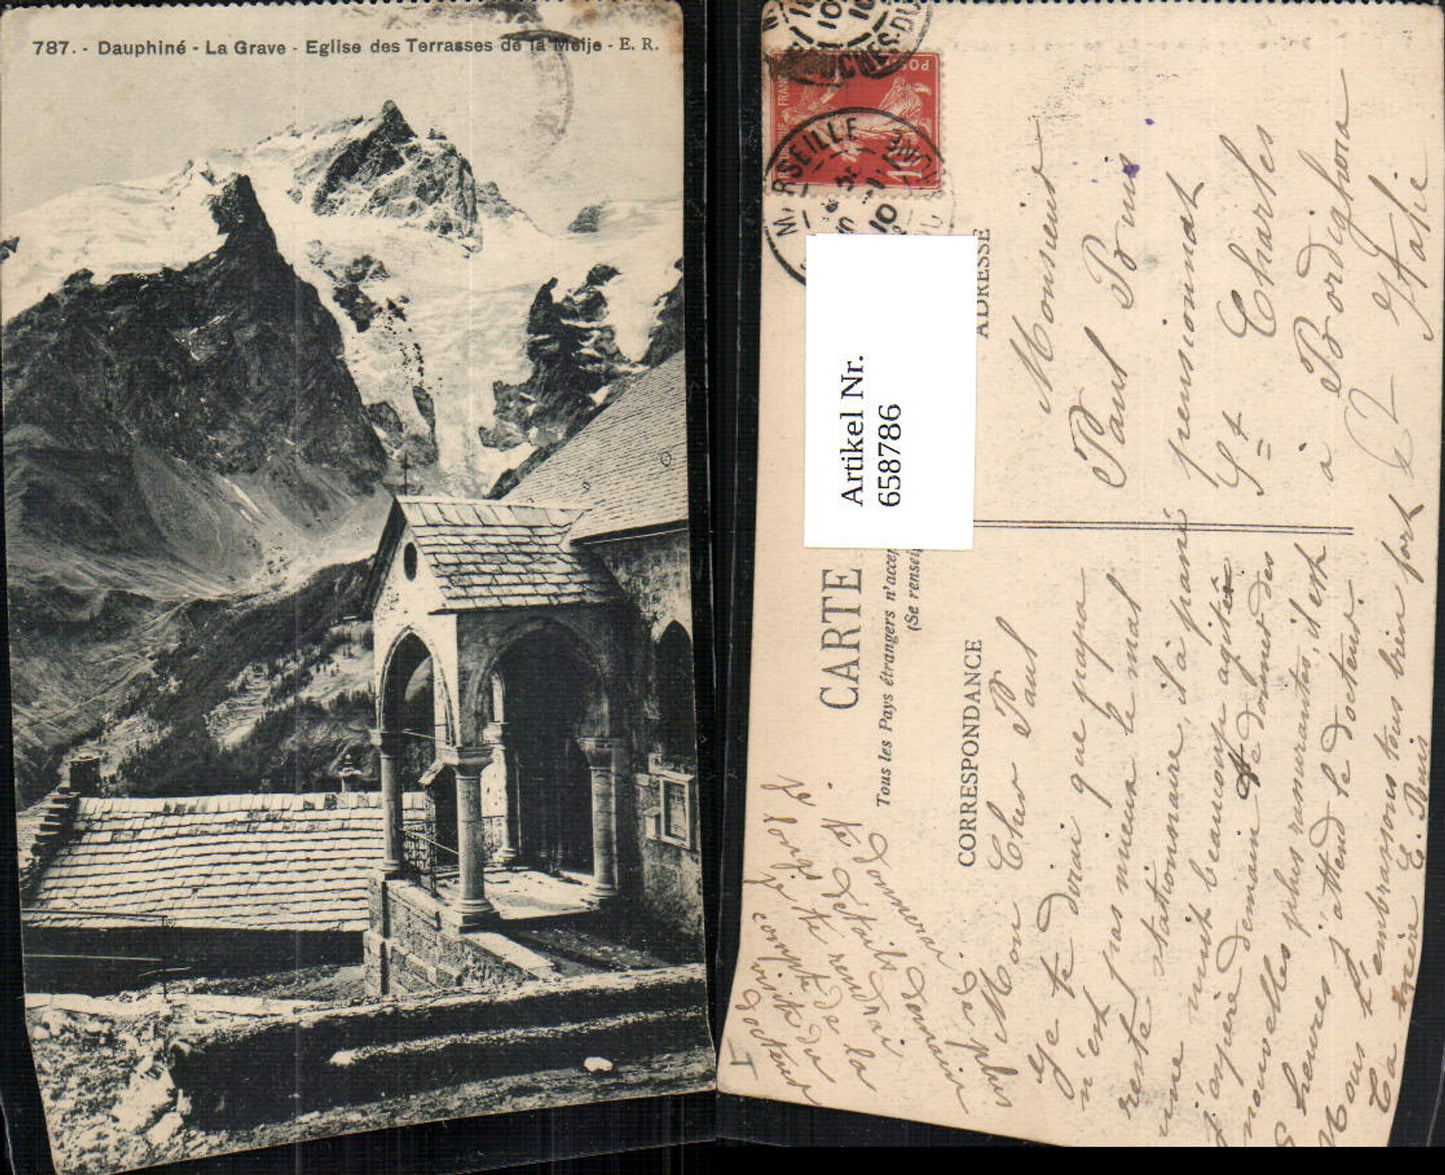 787. - Dauphiné - La Grave - Eglise des Terrasses de la Meije - E. R.
MARSEILLE
RHONE
10
CHES-DU
POSTES
10
Artikel Nr.
658786
CARTE
Tous les Pays étrangers n'accep
(Se rensei
CORRESPONDANCE
ADRESSE
Monsieur
Paul Buis
pensionnat
St Charles
à Bordighera
Italie
Mon Cher Paul
Je te dirai que papa
n'est pas mieux le mal
reste stationnaire, il à passé
une nuit beaucoup agitée
j'espère demain te donner des
nouvelles plus rassurantes, il est
5 heures j'attend le docteur.
Nous t'embrassons tous bien fort
Ta mère E. Buis
je
longs je te
compte de
visite du
docteur
te rendrai
la
donnerai demain
plus
de détails